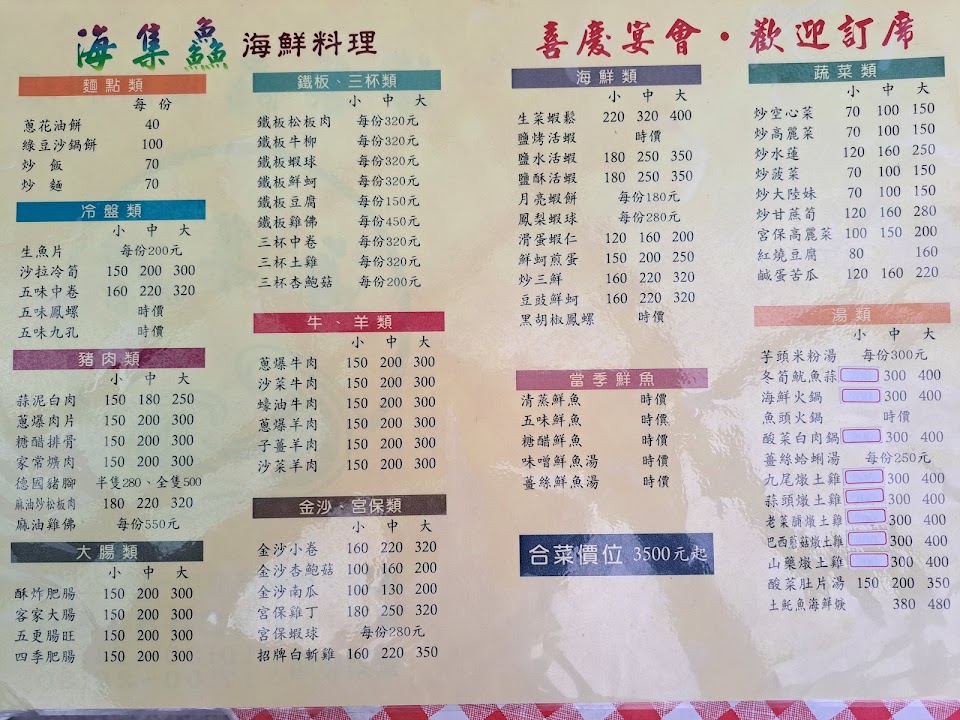 海集鱻 海鮮料理
喜慶宴會・歡迎訂席
麵點類
每份
蔥花油餅 40
綠豆沙鍋餅 100
炒飯 70
炒麵 70
冷盤類
小 中 大
生魚片 每份200元
沙拉冷筍 150 200 300
五味中卷 160 220 320
五味鳳螺 時價
五味九孔 時價
豬肉類
小 中 大
蒜泥白肉 150 180 250
蔥爆肉片 150 200 300
糖醋排骨 150 200 300
家常爌肉 150 200 300
德國豬腳 半隻280、全隻500
麻油炒松板肉 180 220 320
麻油雞佛 每份550元
大腸類
小 中 大
酥炸肥腸 150 200 300
客家大腸 150 200 300
五更腸旺 150 200 300
四季肥腸 150 200 300
鐵板、三杯類
小 中 大
鐵板松板肉 每份320元
鐵板牛柳 每份320元
鐵板蝦球 每份320元
鐵板鮮蚵 每份320元
鐵板豆腐 每份150元
鐵板雞佛 每份450元
三杯中卷 每份320元
三杯土雞 每份320元
三杯杏鮑菇 每份200元
牛、羊類
小 中 大
蔥爆牛肉 150 200 300
沙菜牛肉 150 200 300
蠔油牛肉 150 200 300
蔥爆羊肉 150 200 300
子薑羊肉 150 200 300
沙菜羊肉 150 200 300
金沙・宮保類
小 中 大
金沙小卷 160 220 320
金沙杏鮑菇 100 160 200
金沙南瓜 100 130 200
宮保雞丁 180 250 320
宮保蝦球 每份280元
招牌白斬雞 160 220 350
海鮮類
小 中 大
生菜蝦鬆 220 320 400
鹽烤活蝦 時價
鹽水活蝦 180 250 350
鹽酥活蝦 180 250 350
月亮蝦餅 每份180元
鳳梨蝦球 每份280元
滑蛋蝦仁 120 160 200
鮮蚵煎蛋 150 200 250
炒三鮮 160 220 320
豆豉鮮蚵 160 220 320
黑胡椒鳳螺 時價
當季鮮魚
清蒸鮮魚 時價
五味鮮魚 時價
糖醋鮮魚 時價
味噌鮮魚湯 時價
薑絲鮮魚湯 時價
合菜價位 3500元起
蔬菜類
小 中 大
炒空心菜 70 100 150
炒高麗菜 70 100 150
炒水蓮 120 160 250
炒菠菜 70 100 150
炒大陸妹 70 100 150
炒甘蔗筍 120 160 280
宮保高麗菜 100 150 200
紅燒豆腐 80 160
鹹蛋苦瓜 120 160 220
湯類
小 中 大
芋頭米粉湯 每份300元
冬筍魷魚蒜 300 400
海鮮火鍋 300 400
魚頭火鍋 時價
酸菜白肉鍋 300 400
薑絲蛤蜊湯 每份250元
九尾燉土雞 300 400
蒜頭燉土雞 300 400
老菜脯燉土雞 300 400
巴西蘑菇燉土雞 300 400
山藥燉土雞 300 400
酸菜肚片湯 150 200 350
土魠魚海鮮焿 380 480